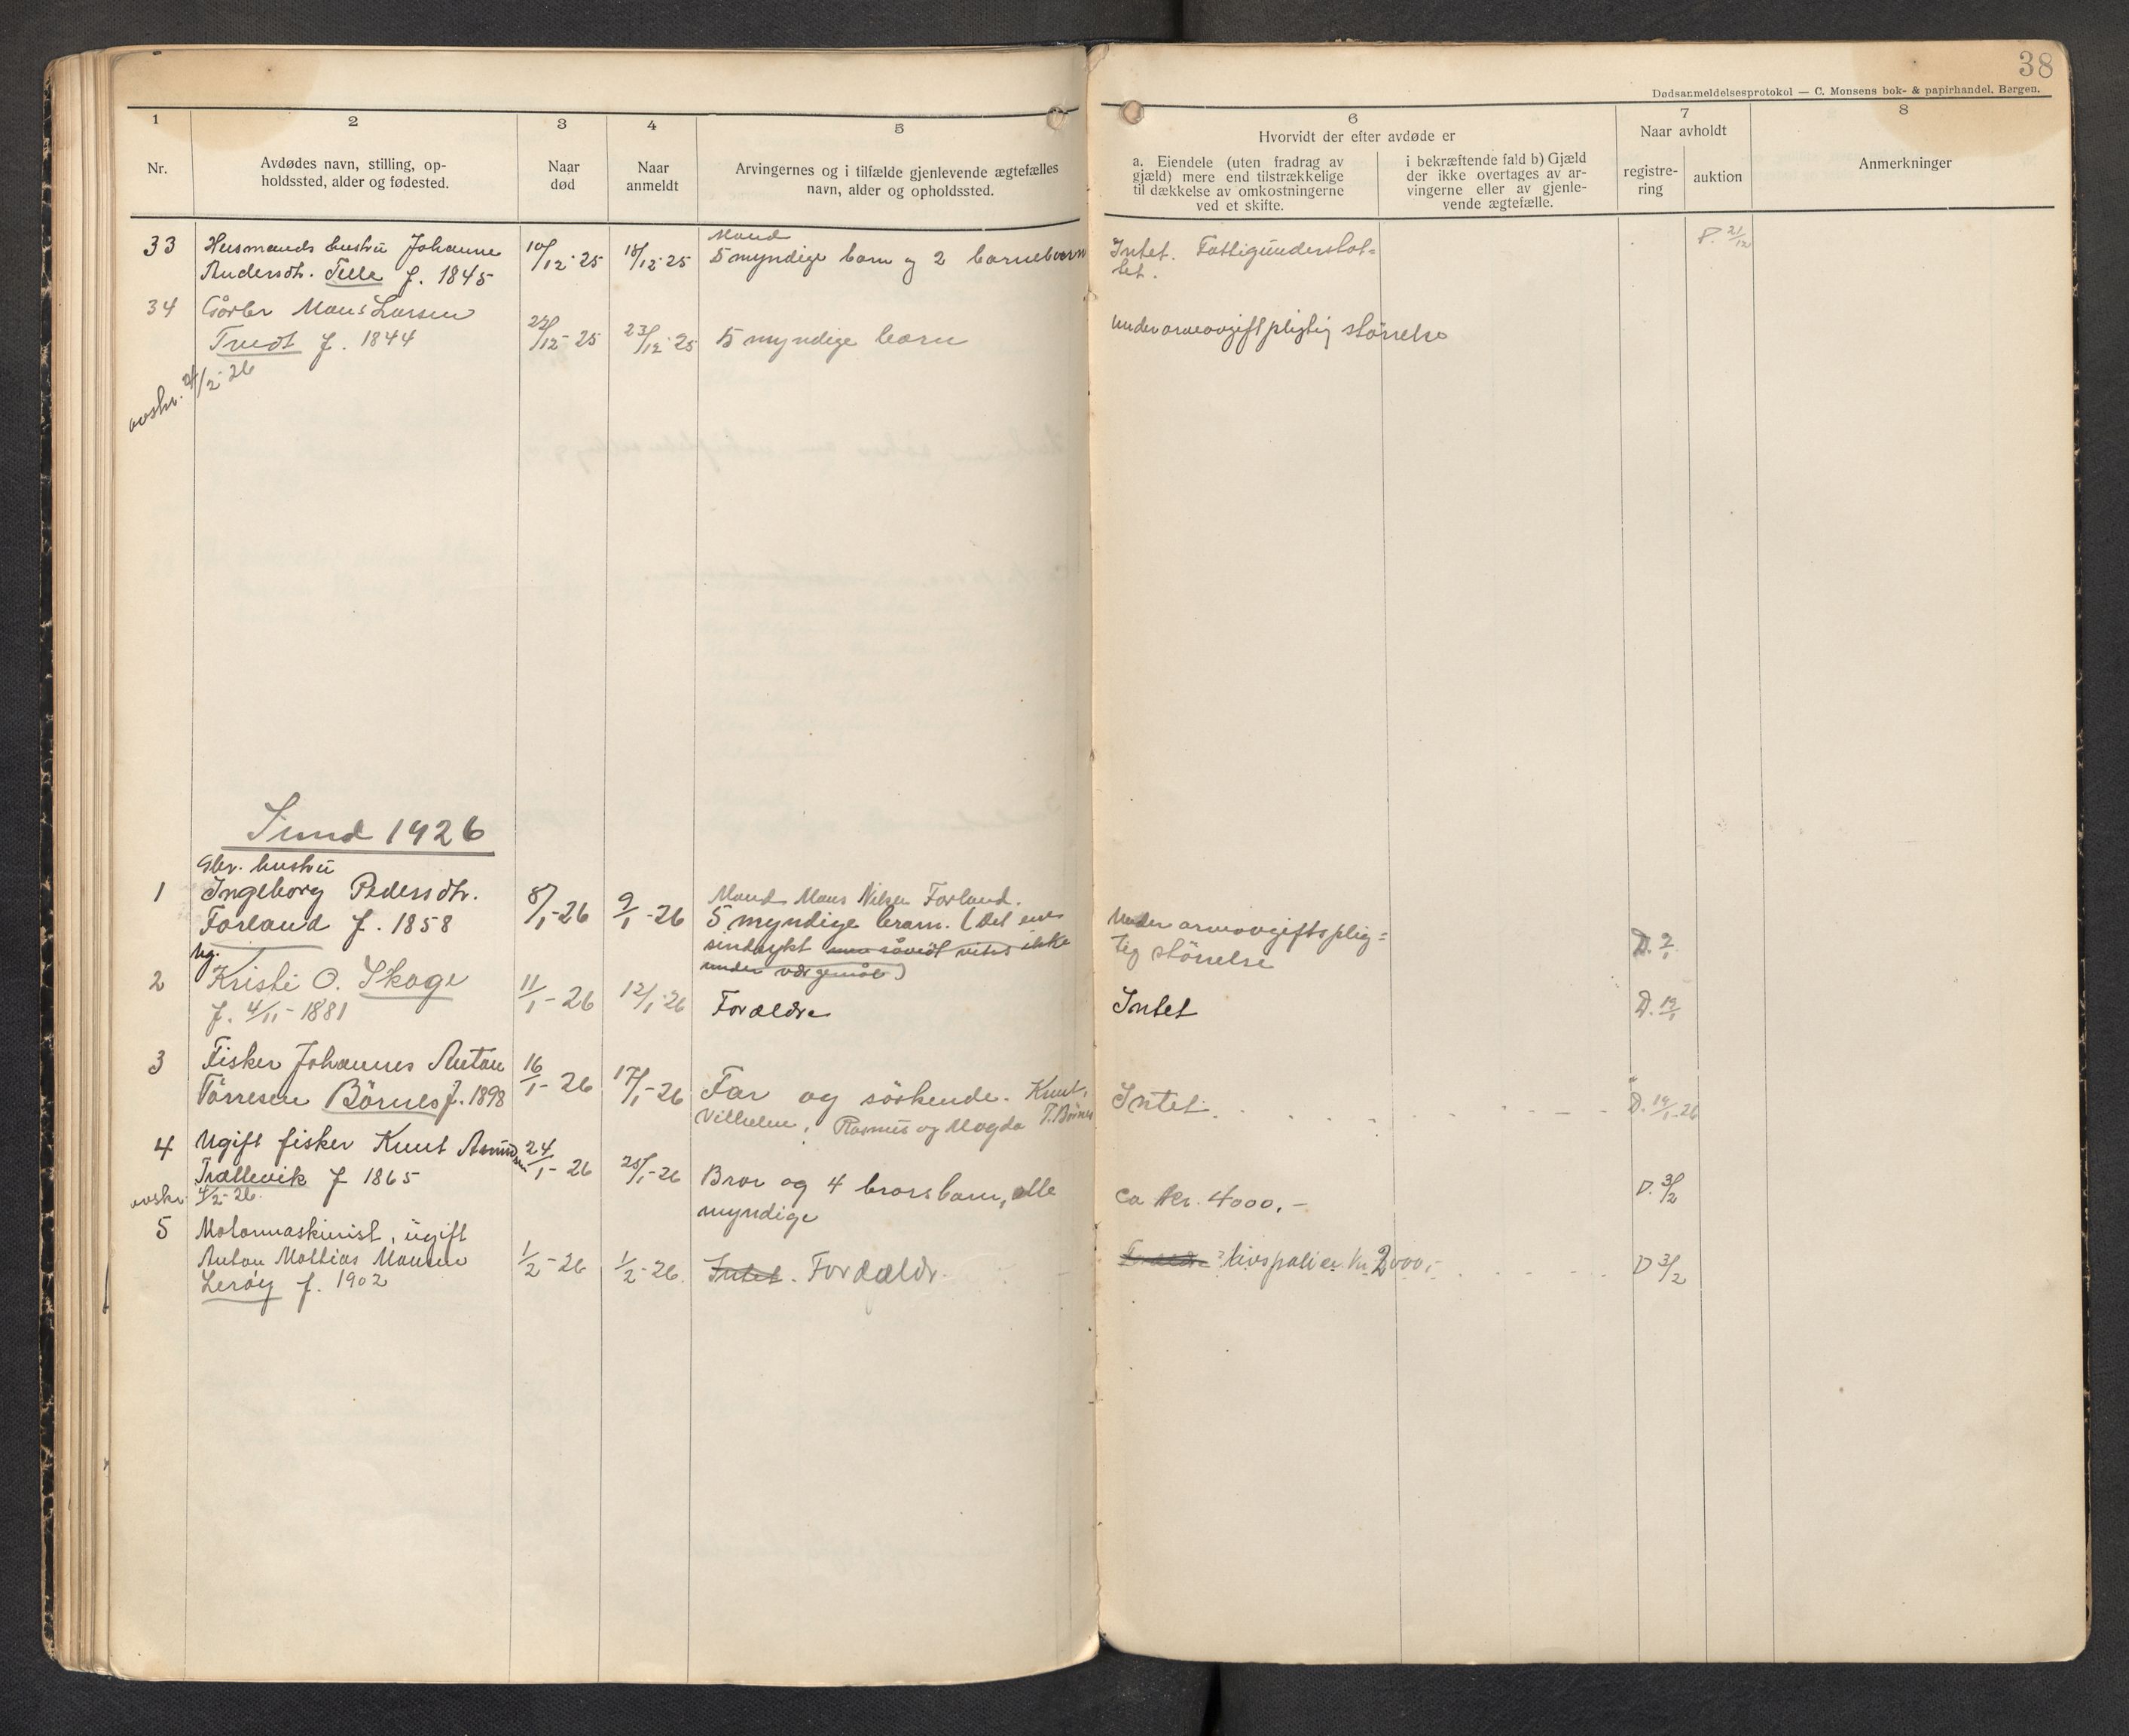 38
Dødsanmeldelsesprotokol — C. Monsens bok- & papirhandel, Bergen.
1
2
3
4
5
6
7
8
Nr.
Avdødes navn, stilling, op-
holdssted, alder og fødested.
Naar
død
Naar
anmeldt
Arvingernes og i tilfælde gjenlevende ægtefælles
navn, alder og opholdssted.
Hvorvidt der efter avdøde er
a. Eiendele (uten fradrag av
gjæld) mere end tilstrækkelige
til dækkelse av omkostningerne
ved et skifte.
i bekræftende fald b) Gjæld
der ikke overtages av ar-
vingerne eller av gjenle-
vende ægtefælle.
Naar avholdt
registre-
ring
auktion
Anmerkninger
33
Husmands hustru Johanne
Andersdtr. Telle f. 1845
10/12-25
18/12-25
Mand
5 myndige barn og 2 barnebarn
Intet. Fattigunderstøt=
tet.
P. 21/12
34
Gårbr Mons Larsen
Tveit f. 1844
22/12-25
23/12-25
5 myndige barn
Under arveavgiftpligtig størrelse
avskr. 4/2-26
Sund 1926
1
Gbr. hustru
Ingeborg Pedersdtr.
Forland f. 1858
8/1-26
9/1-26
Mand Mons Nilsen Forland.
5 myndige barn. (Det ene
sindsykt men såvidt vites ikke
under værgemål)
Under arveavgiftsplig=
tig størrelse
D. 9/1
2
Ug.
Kristi O. Skoge
f. 4/11-1881
11/1-26
12/1-26
Forældre
Intet
D. 12/1
3
Fisker Johannes Anton
Tørresen Börnes f. 1898
16/1-26
17/1-26
Far og söskende. Knut,
Vilhelm, Rasmus og Magda T. Börnes
Intet.
D. 19/1-26
4
Ugift fisker Knut Asmundsen
Trællevik f 1865
avskr. 4/2-26.
24/1-26
25/1-26
Bror og 4 brorsbarn, alle
myndige
ca kr. 4000,-
D. 3/2
5
Motormaskinist, ugift
Anton Mathias Monsen
Leröy f. 1902
1/2-26
1/2-26.
Intet. Forældr.
livspolise kr 2000,-
D 3/2